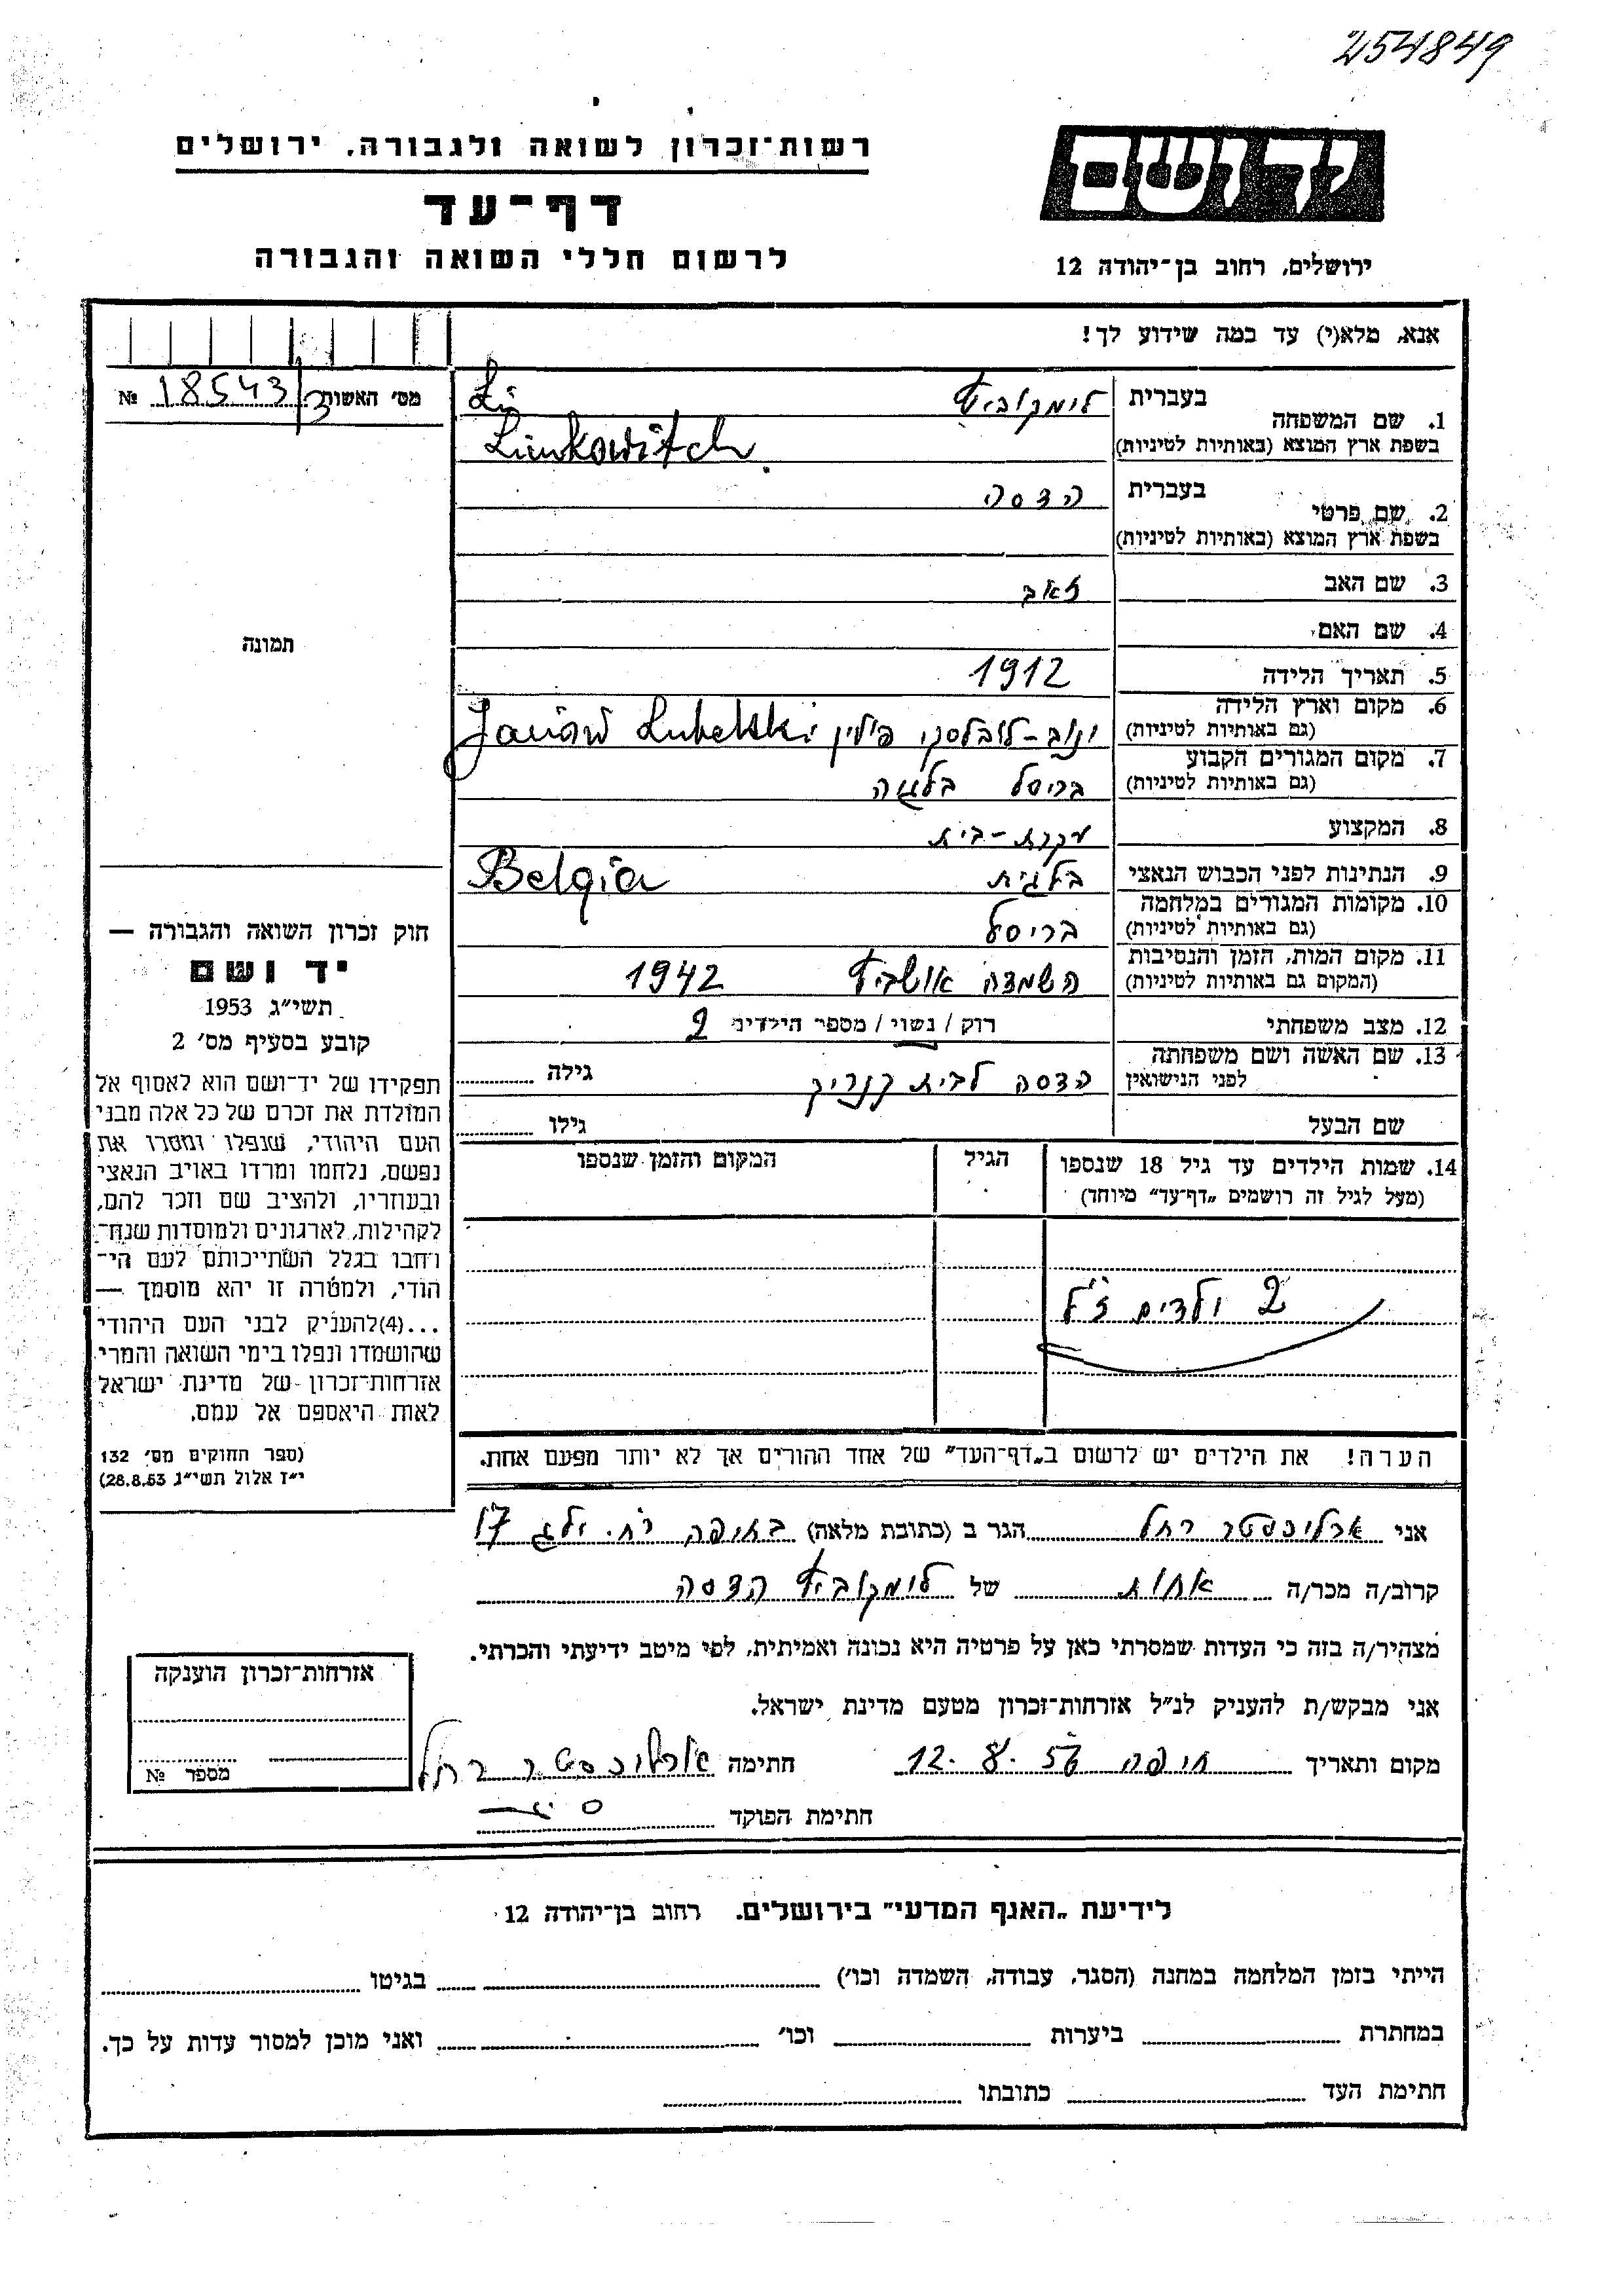 254849
רשות־זכרון לשואה ולגבורה, ירושלים
דף־עד
לרשום חללי השואה והגבורה
יד ושם
ירושלים, רחוב בן־יהודה 12
אנא, מלא(י) עד כמה שידוע לך!
מס' האשות 18543/3 №
1. שם המשפחה
בעברית לימקוביץ Li
בשפת ארץ המוצא (באותיות לטיניות) Limkowitch
2. שם פרטי
בעברית הדסה
בשפת ארץ המוצא (באותיות לטיניות)
3. שם האב זאב
4. שם האם
5. תאריך הלידה 1912
6. מקום וארץ הלידה
(גם באותיות לטיניות) ינוב-לובלסקי פולין Janów Lubelski
7. מקום המגורים הקבוע
(גם באותיות לטיניות) בריסל בלגיה
8. המקצוע עקרת-בית
9. הנתינות לפני הכבוש הנאצי בלגית Belgia
10. מקומות המגורים במלחמה
(גם באותיות לטיניות) בריסל
11. מקום המות, הזמן והנסיבות
(המקום גם באותיות לטיניות) השמדה אושביץ 1942
12. מצב משפחתי רוק / נשוי / מספר הילדים 2
13. שם האשה ושם משפחתה
לפני הנישואין הדסה לבית גילה
שם הבעל גילו
14. שמות הילדים עד גיל 18 שנספו הגיל המקום והזמן שנספו
(מעל לגיל זה רושמים „דף־עד" מיוחד)
2 ילדים ז"ל
הערה! את הילדים יש לרשום ב„דף־העד" של אחד ההורים אך לא יותר מפעם אחת.
תמונה
חוק זכרון השואה והגבורה —
יד ושם
תשי"ג 1953
קובע בסעיף מס' 2
תפקידו של יד־ושם הוא לאסוף אל
המולדת את זכרם של כל אלה מבני
העם היהודי, שנפלו ומסרו את
נפשם, נלחמו ומרדו באויב הנאצי
ובעוזריו, ולהציב שם וזכר להם,
לקהילות, לארגונים ולמוסדות שנח־
רחבו בגלל השתייכותם לעם הי־
הודי, ולמטרה זו יהא מוסמך —
...(4)להעניק לבני העם היהודי
שהושמדו ונפלו בימי השואה והמרי
אזרחות־זכרון של מדינת ישראל
לאות היאספם אל עמם.
(ספר החוקים מס' 132
י"ז אלול תשי"ג 28.8.53)
אני רחל הגר ב (כתובת מלאה) בחיפה רח. 17
קרוב/ה מכר/ה אחות של לימקוביץ הדסה
מצהיר/ה בזה כי העדות שמסרתי כאן על פרטיה היא נכונה ואמיתית, לפי מיטב ידיעתי והכרתי.
אני מבקש/ת להעניק לנ"ל אזרחות־זכרון מטעם מדינת ישראל.
מקום ותאריך חיפה 12.8.56 חתימה רחל
חתימת הפוקד
אזרחות־זכרון הוענקה
מספר №
לידיעת „האגף המדעי" בירושלים. רחוב בן־יהודה 12
הייתי בזמן המלחמה במחנה (הסגר, עבודה, השמדה וכו') בגיטו
במחתרת ביערות וכו' ואני מוכן למסור עדות על כך.
חתימת העד כתובתו